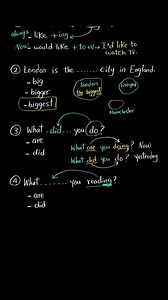 always like + ing
Now would like + to + v → I'd like to
watch TV.
② London is the ...... city in England.
- big
- bigger
- biggest
London
the biggest
Liverpool
Manchester
③ What ...did... you do?
- are
- did
What are you doing? Now
What did you do? Yesterday
④ What ......... you reading?
- are
- did